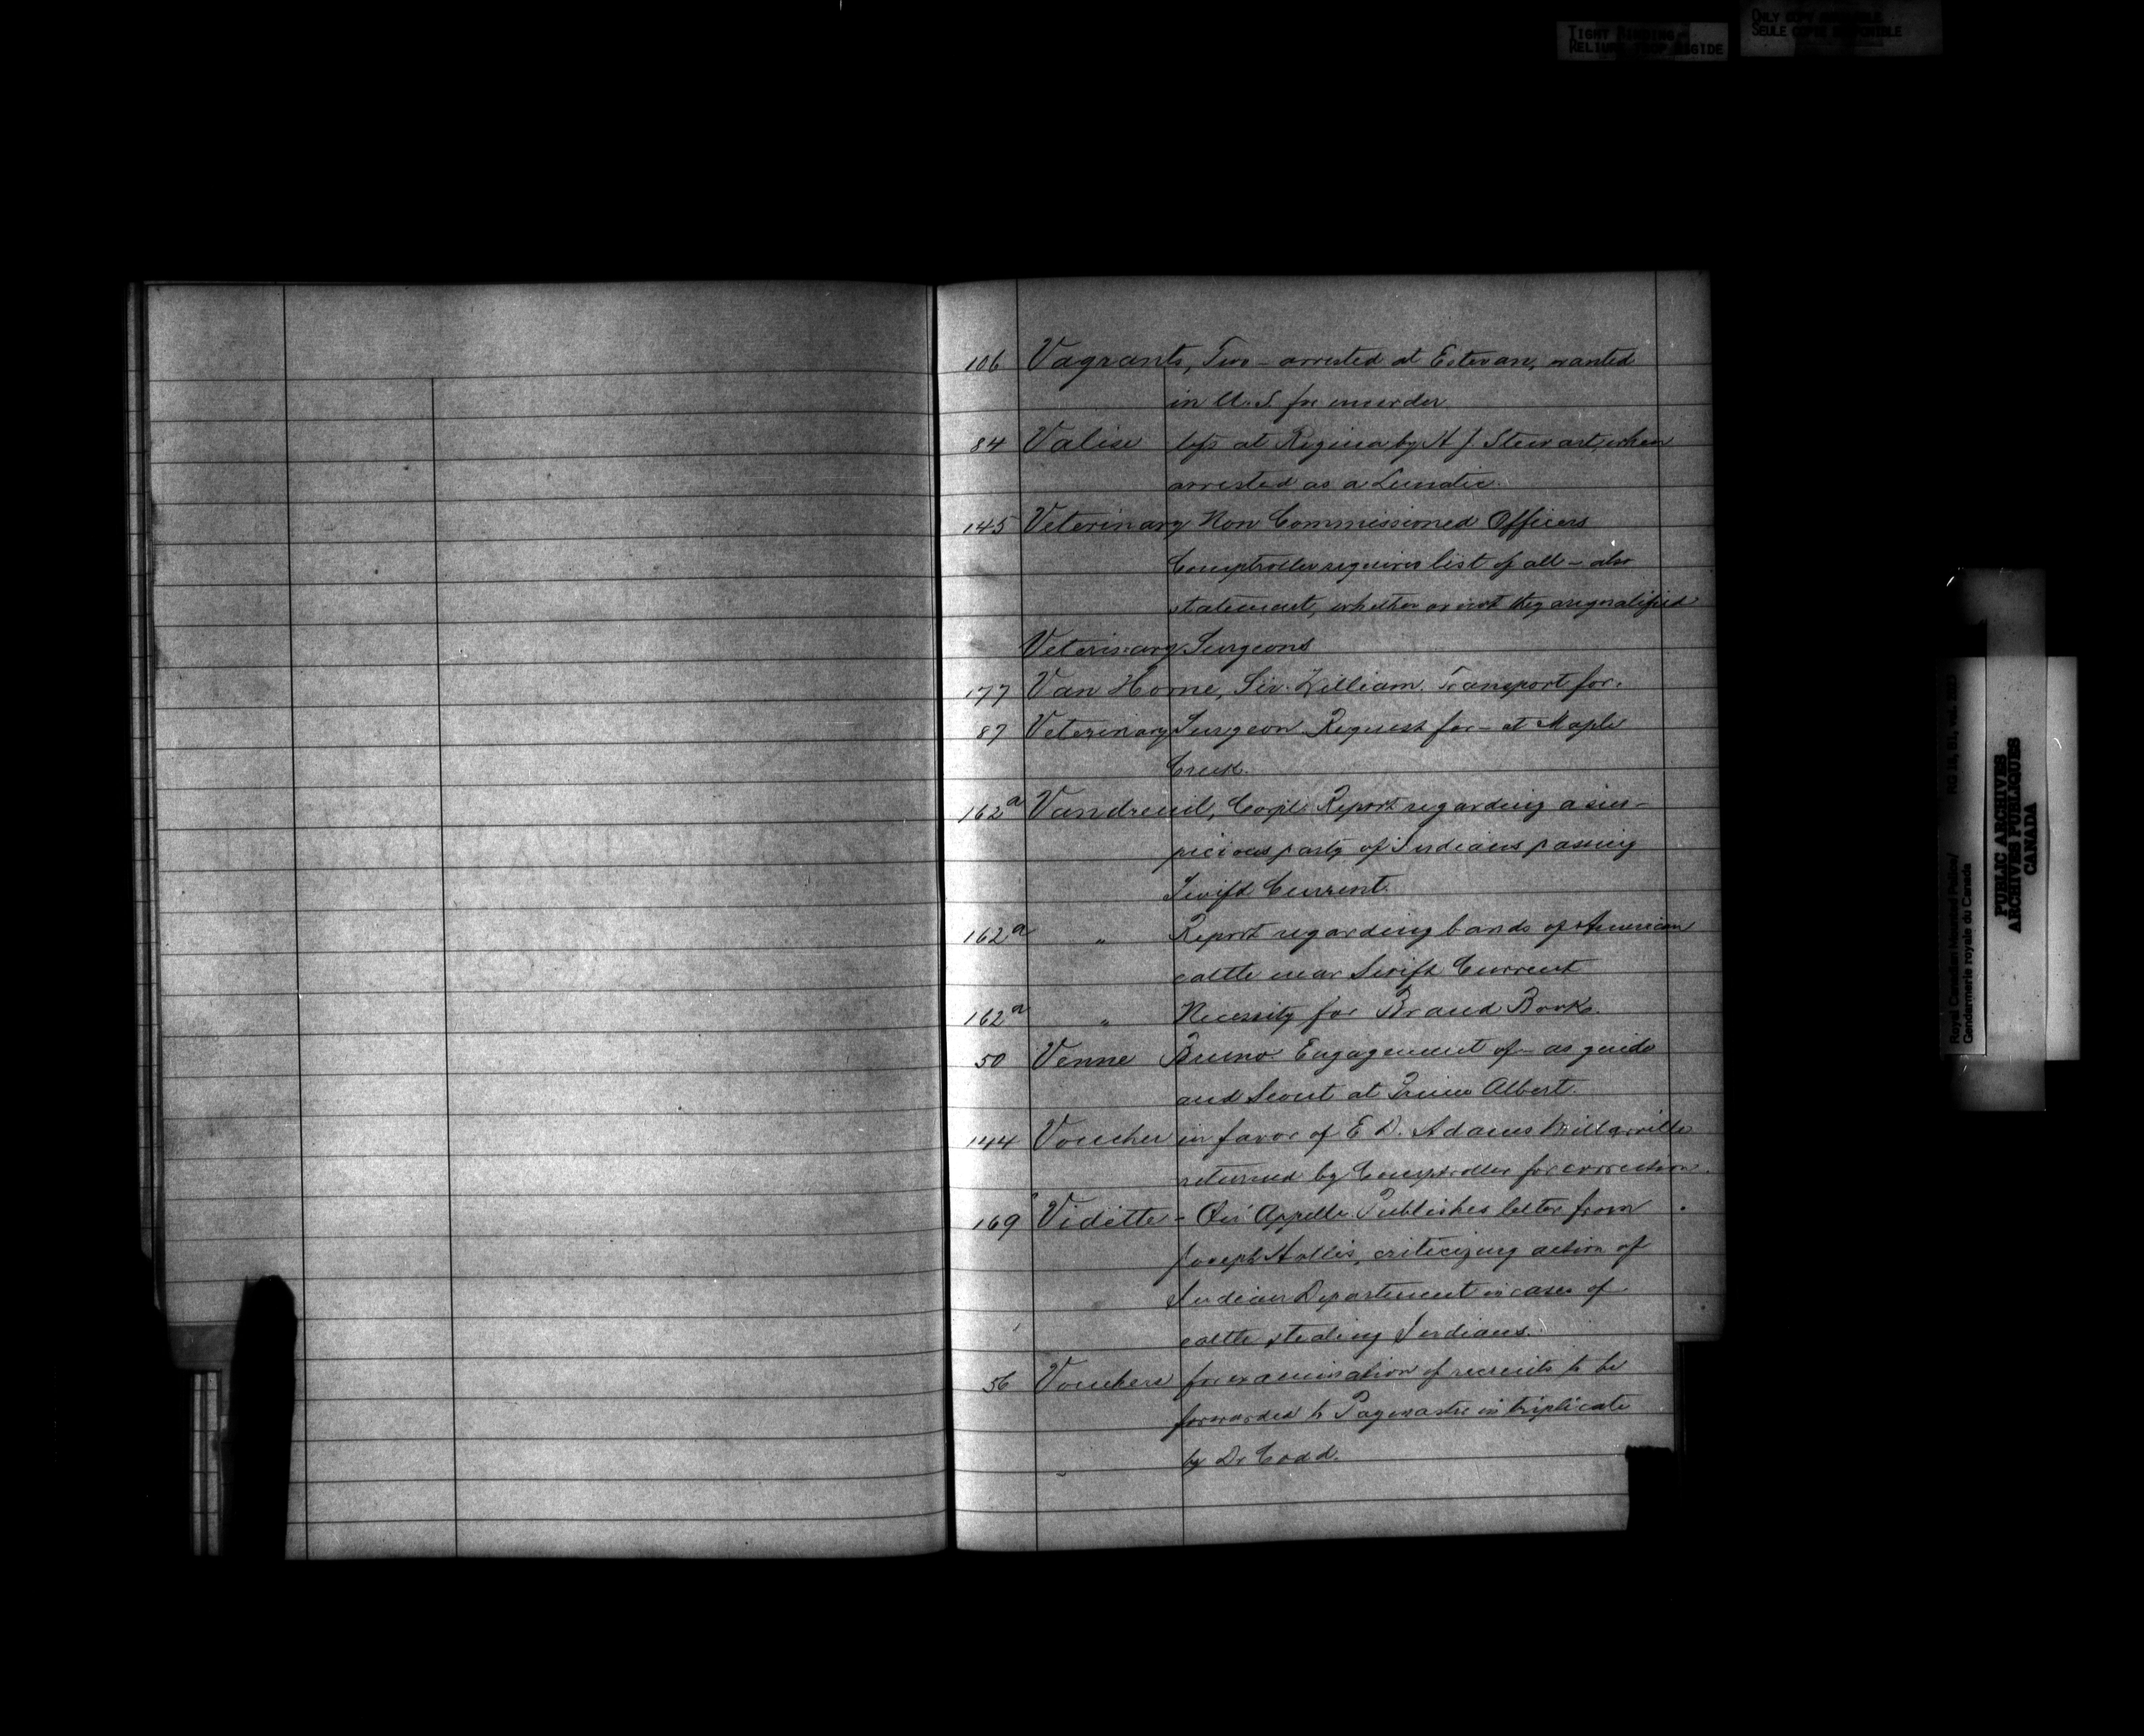 TIGHT BINDING
RELIURE TROP RIGIDE
ONLY COPY AVAILABLE
SEULE COPIE DISPONIBLE
106 Vagrants, Two - arrested at Estevan, wanted
in U.S. for murder
84 Valise left at Regina by A J Stewart, when
arrested as a Lunatic.
145 Veterinary Non Commissioned Officers
Comptroller requires list of all - also
statement, whether or not they are qualified
Veterinary Surgeons
177 Van Horne, Sir William. Transport for.
87 Veterinary Surgeon Request for - at Maple
Creek.
162a Vandreuil, Corpl. Report regarding a sus-
picious party of Indians passing
Swift Current.
162a " Report regarding bands of American
cattle near Swift Current
162a " Necessity for Brand Books.
50 Venne Bruno. Engagement of - as guide
and Scout at Prince Albert.
144 Voucher in favor of E D. Adams Millarville
returned by Comptroller for correction.
169 Vidette - Qu'Appelle Publishes letter from
Joseph Hollis, criticizing action of
Indian Department in cases of
cattle stealing Indians.
56 Vouchers for examination of recruits to be
forwarded to Paymaster in triplicate
by Dr Codd.
Royal Canadian Mounted Police/
Gendarmerie royale du Canada
PUBLIC ARCHIVES
ARCHIVES PUBLIQUES
CANADA